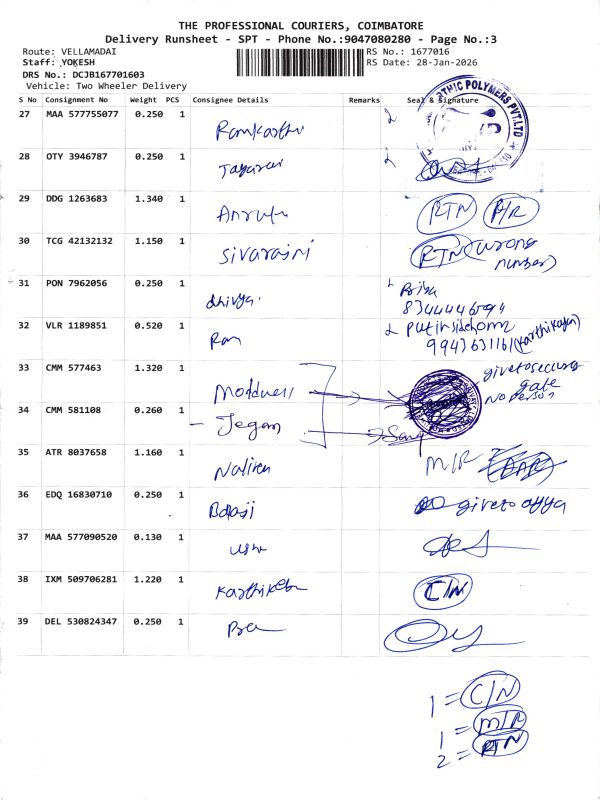 THE PROFESSIONAL COURIERS, COIMBATORE
Delivery Runsheet - SPT - Phone No.:9047080280 - Page No.:3
Route: VELLAMADAI RS No.: 1677016
Staff: YOKESH RS Date: 28-Jan-2026
DRS No.: DCJB167701603
Vehicle: Two Wheeler Delivery
S No Consignment No Weight PCS Consignee Details Remarks Seal & Signature
27 MAA 577755077 0.250 1 Ramkarthi
28 OTY 3946787 0.250 1
29 DDG 1263683 1.340 1 RTN P/R
30 TCG 42132132 1.150 1 Sivarajni RTN (wrong
number)
31 PON 7962056 0.250 1 dhivya. Priya
8344446594
32 VLR 1189851 0.520 1 Ram put in side home
9943631161 (Karthikeyan)
33 CMM 577463 1.320 1 give to secure
gate
no person
34 CMM 581108 0.260 1 - Jegan
35 ATR 8037658 1.160 1 M/R
36 EDQ 16830710 0.250 1 Balaji give to ayya
37 MAA 577090520 0.130 1 Usha
38 IXM 509706281 1.220 1 Karthikeen C/N
39 DEL 530824347 0.250 1
1 = C/N
1 = M/R
2 = RTN